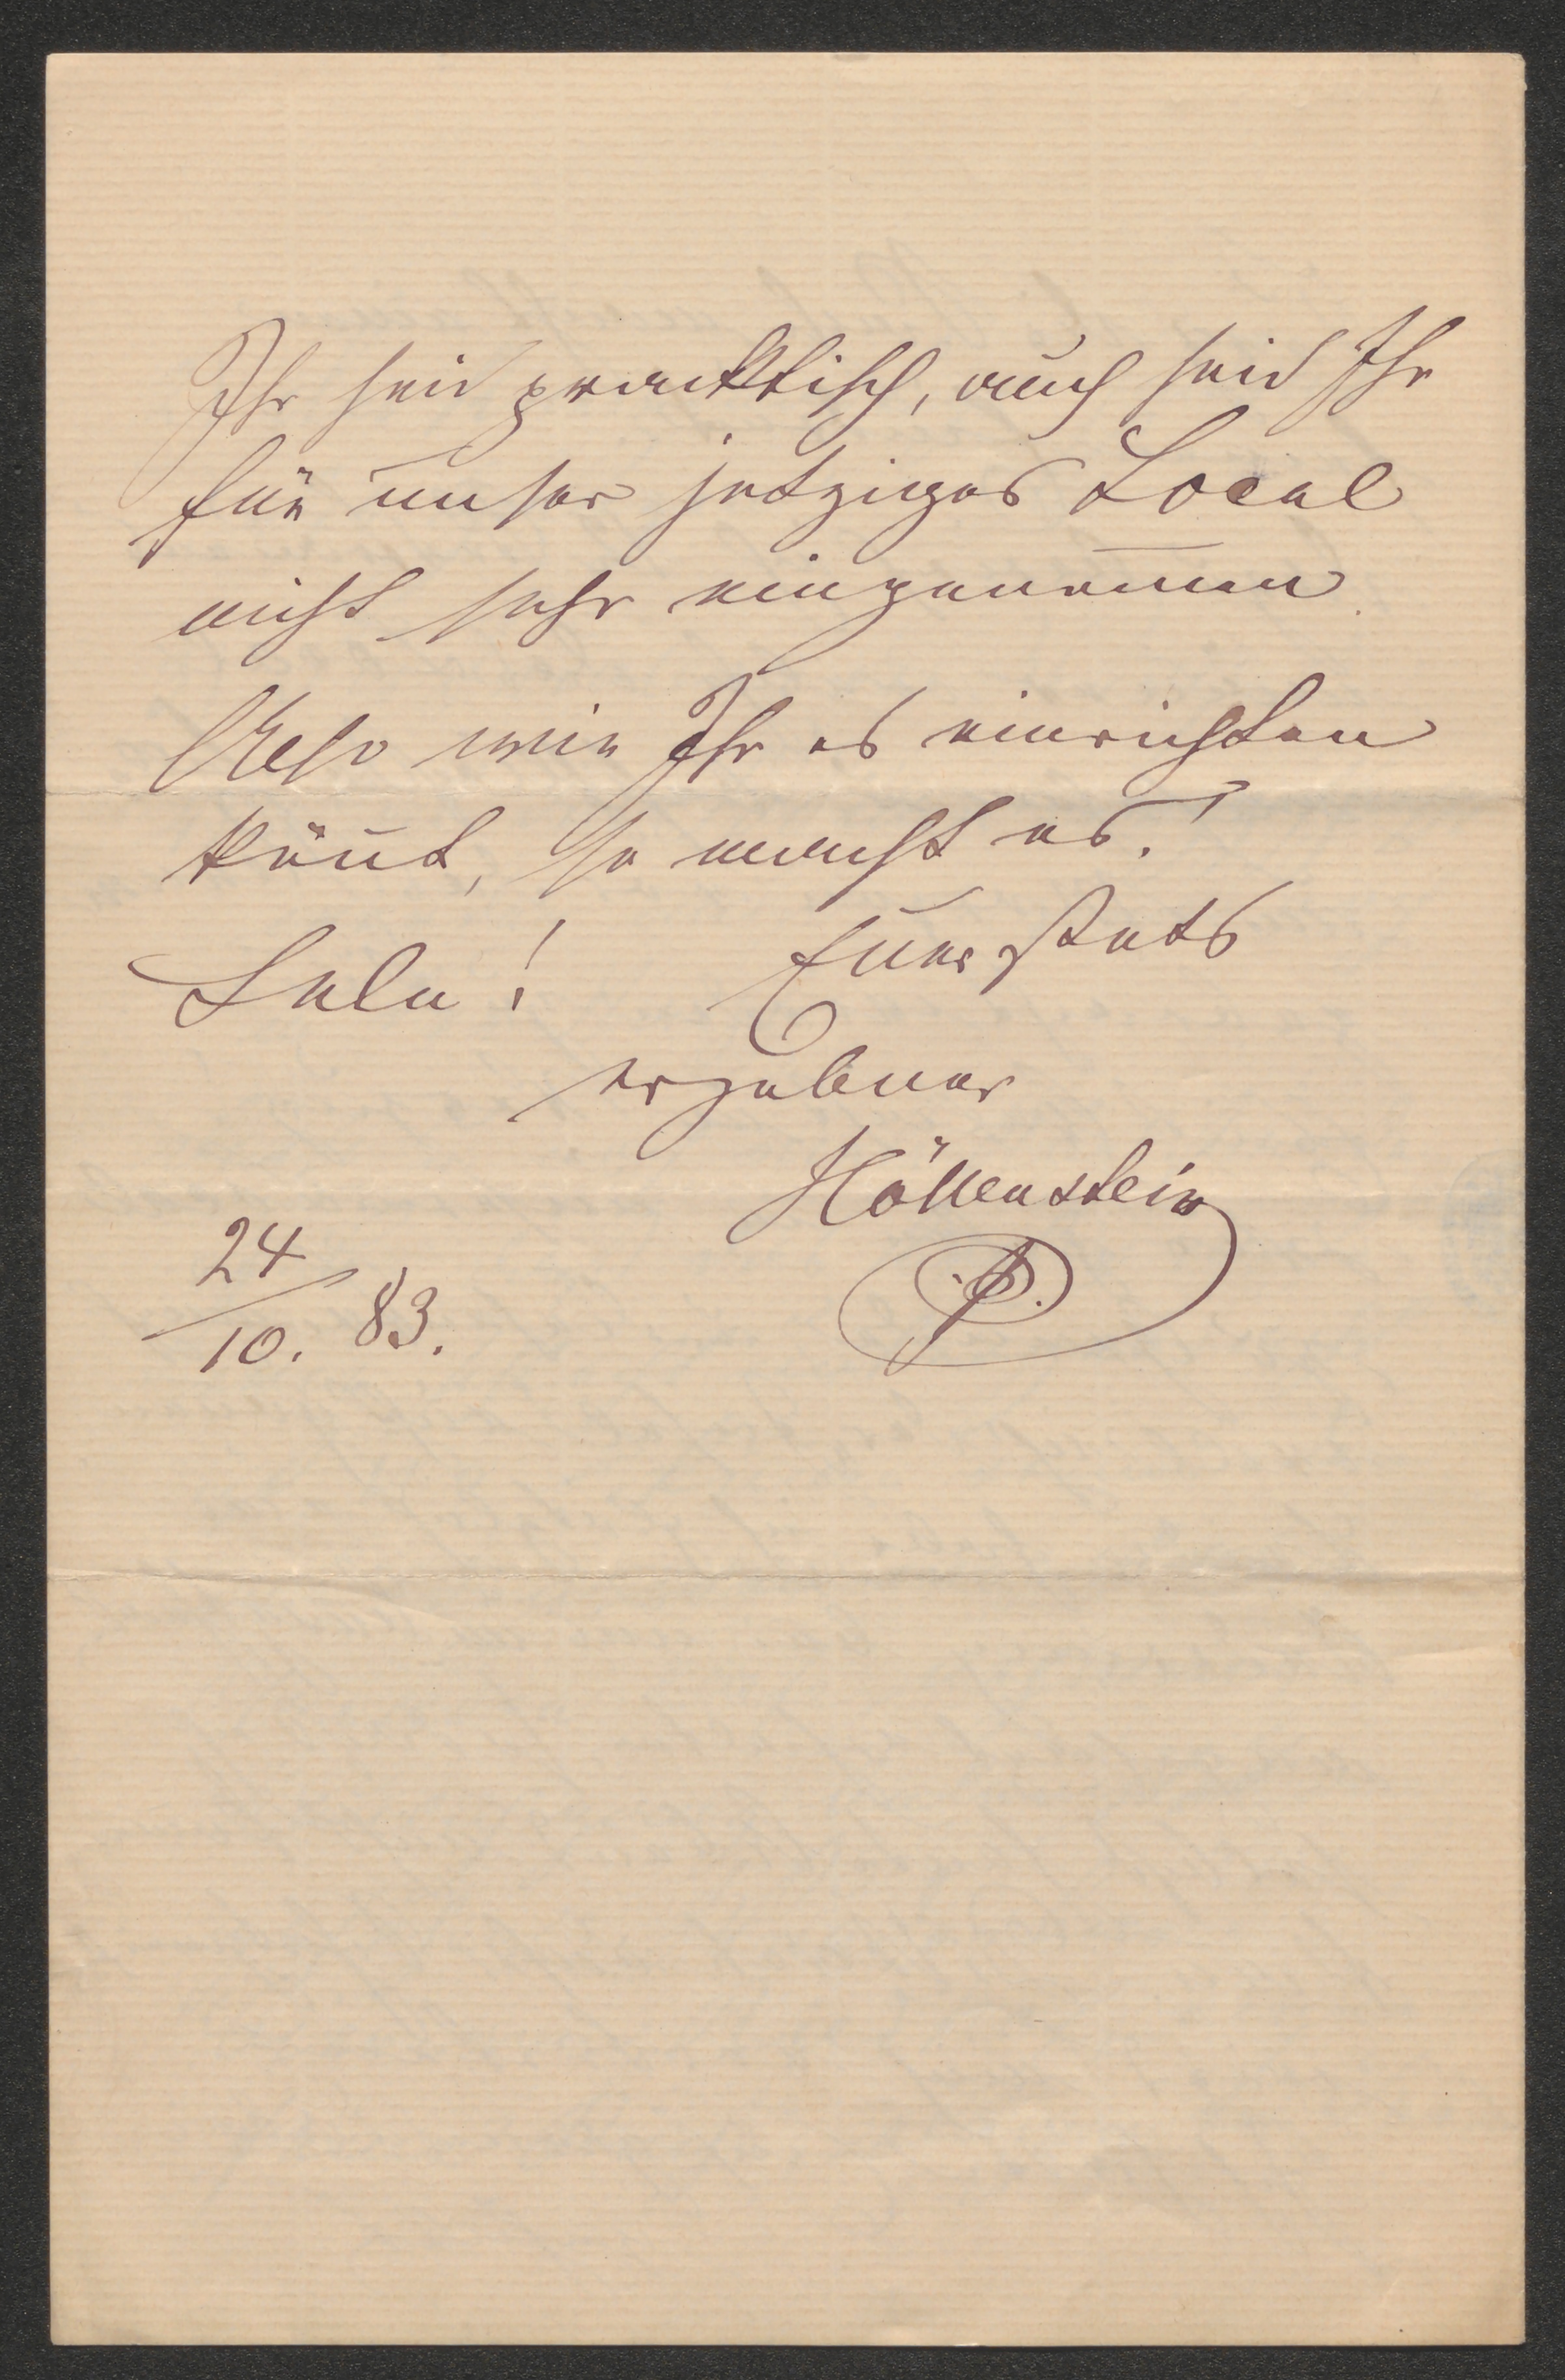 Ihr seid praktisch, auch seid Ihr
für unser jetziges Local
nicht sehr eingenom̅en.
Also wie Ihr es einrichten
kön̅t, so macht es!
Lulu! Euer stets
ergebner
Höllenstein
24/10. 83.